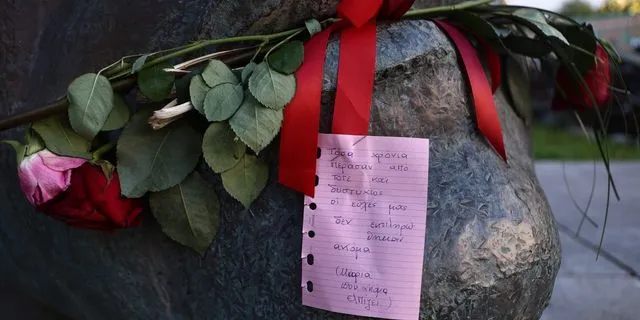 Τόσα χρόνια
πέρασαν από
τότε και
δυστυχώς
οι ευχές μας
δεν εκπληρώ
θηκαν
ακόμα
(Μαρία
που ακόμα
ελπίζει)